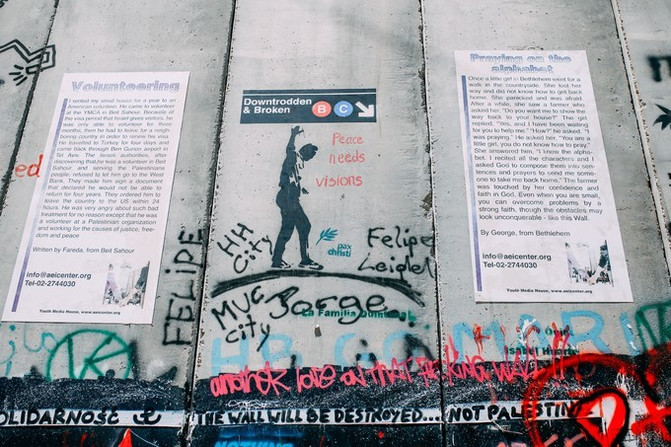 Volunteering
I rented my small house for a year to an
American volunteer. He came to volunteer
at the YMCA in Beit Sahour. Because of
the visa period that Israel gives visitors, he
was only able to volunteer for three
months, then he had to leave for a neigh-
boring country in order to renew his visa.
He travelled to Turkey for four days and
came back through Ben Gurion airport in
Tel Aviv. The Israeli authorities, after
knowing that he was a volunteer in Beit
Sahour and serving the Palestinian
people, refused to let him go to the West
Bank. They made him sign a document
that declared he would not be able to
return for four years. They ordered him to
leave the country to the US within 24
hours. He was very angry about such bad
treatment for no reason except that he was
a volunteer at a Palestinian organization
and working for the causes of justice, free-
dom and peace
Written by Fareda, from Beit Sahour
info@aeicenter.org
Tel-02-2744030
Youth Media House, www.aeicenter.org
Downtrodden
& Broken
B C
Peace
needs
visions
pax
christi
HH
City
MUC
City
FELIPE
Felipe
Jorge
La Familia
Praying on the
alphabet
Once a little girl in Bethlehem went for a
walk in the countryside. She lost her
way and did not know how to get back
home. She panicked and was afraid.
After a while, she saw a farmer who
asked her, "Do you want me to show the
way back to your house?" The girl
replied, "Yes, and I have been waiting
for you to help me." "How?" he asked. "I
was praying." He asked her, "You are a
little girl, you do not know how to pray."
She answered him, "I know the alpha-
bet. I recited all the characters and I
asked God to compose them into sen-
tences and prayers to send me some-
one to take me back home." The farmer
was touched by her confidence and
faith in God. Even when you are small,
you can overcome problems by a
strong faith, though the obstacles may
look unconquerable - like this Wall.
By George, from Bethlehem
info@aeicenter.org
Tel-02-2744030
Youth Media House, www.aeicenter.org
ed
SOLIDARNOŚĆ
THE WALL WILL BE DESTROYED... NOT PALESTINE
NOTHING